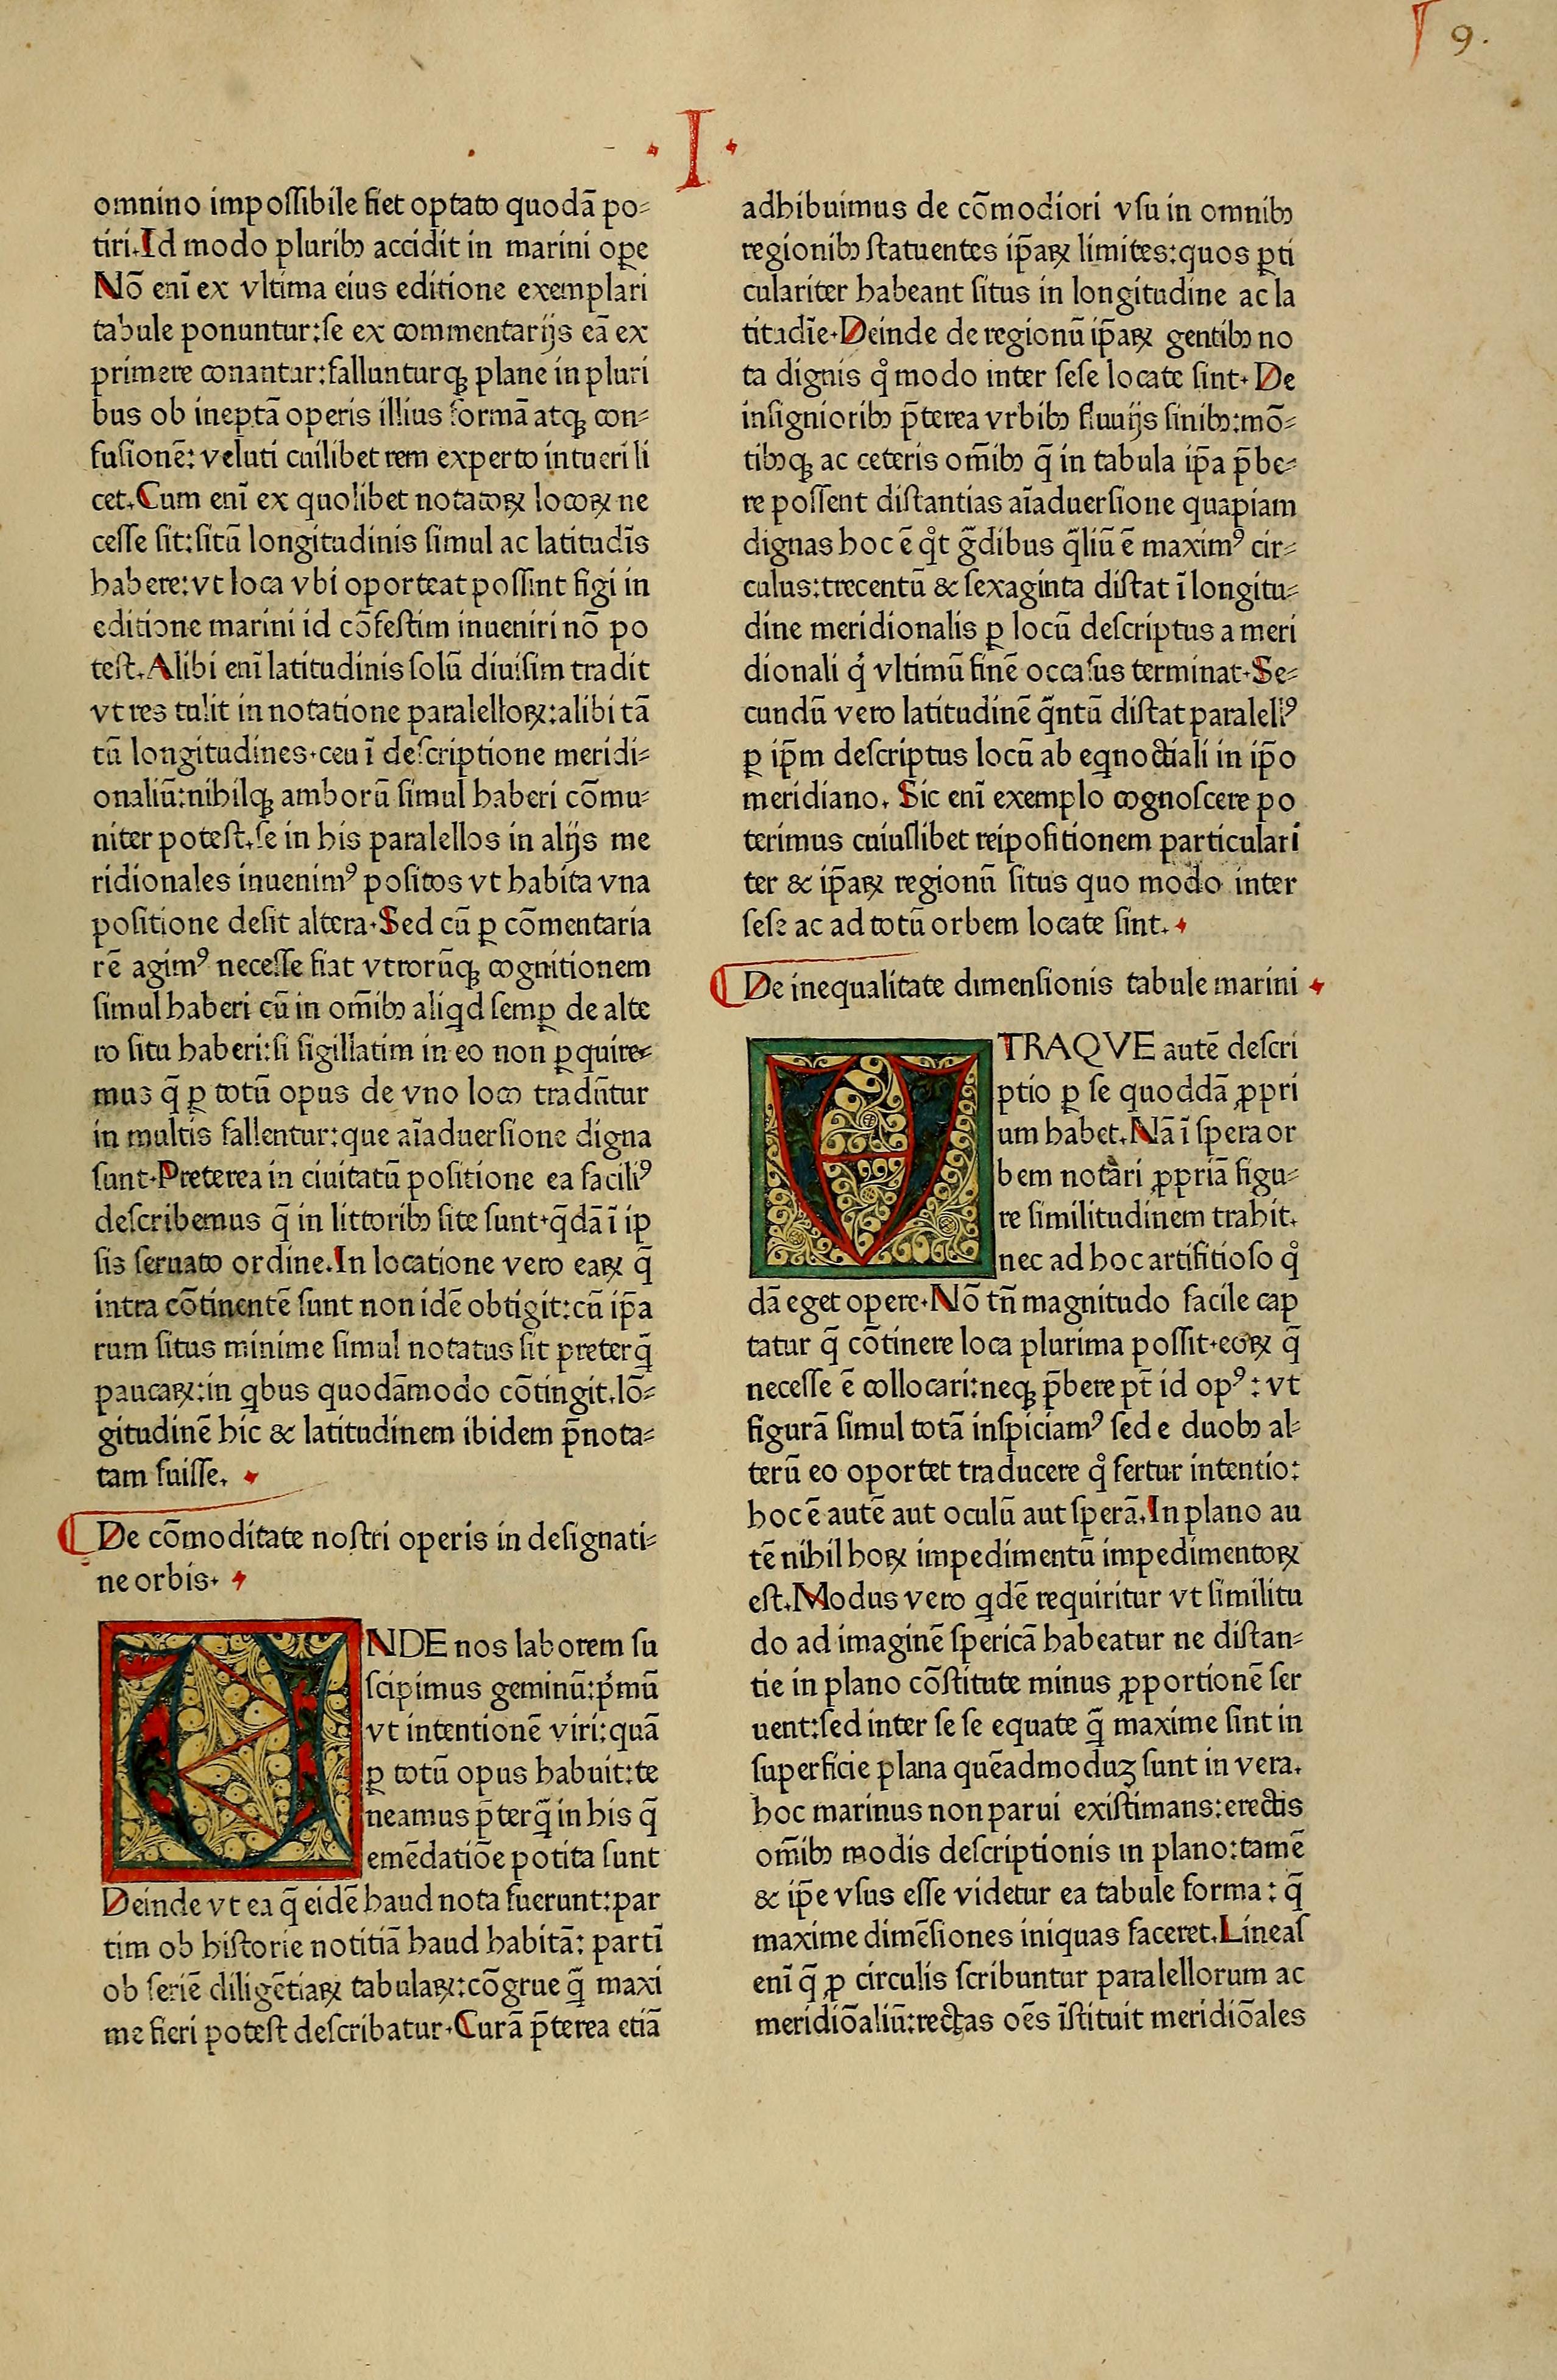 9.
· I ·
omnino impoſſibile fiet optato quodā po⸗
tiri.Id modo pluribꝫ accidit in marini oꝑe
Nō enī ex vltima eius editione exemplari
tabule ponuntur:ſe ex commentarijs eā ex
primere conantur:fallunturqꝫ plane in pluri
bus ob ineptā operis illius formā atqꝫ con⸗
fuſionē: veluti cuilibet rem experto intueri li
cet.Cum enī ex quolibet notatoꝝ locoꝝ ne
ceſſe ſit:ſitū longitudinis ſimul ac latitudīs
habere:vt loca vbi oporteat poſſint figi in
editione marini id cōfeſtim inueniri nō po
teſt.Alibi enī latitudinis ſolū diuiſim tradit
vt res tulit in notatione paralelloꝝ:alibi tā
tū longitudines.ceu ī deſcriptione meridi⸗
onaliū:nihilqꝫ amborū ſimul haberi cōmu⸗
niter poteſt.ſe in his paralellos in alijs me
ridionales inuenimꝰ poſitos vt habita vna
poſitione deſit altera.Sed cū ꝑ cōmentaria
rē agimꝰ neceſſe fiat vtrorūqꝫ cognitionem
ſimul haberi cū in om̄ibꝫ aliqd ſemꝑ de alte
ro ſitu haberi:ſi ſigillatim in eo non ꝑquire⸗
mus q̄ ꝑ totū opus de vno loco tradūtur
in multis fallentur:que aīaduerſione digna
ſunt.Preterea in ciuitatū poſitione ea faciliꝰ
deſcribemus q̄ in littoribꝫ ſite ſunt.q̄dā ī ip
ſis ſeruato ordine.In locatione vero eaꝝ q̄
intra cōtinentē ſunt non idē obtigit:cū ip̄a
rum ſitus minime ſimul notatus ſit preterq̄
paucaꝝ:in qbus quodāmodo cōtingit.lō⸗
gitudinē hic & latitudinem ibidem p̄nota⸗
tam fuiſſe.
De cōmoditate noſtri operis in deſignati⸗
ne orbis.
UNDE nos laborem ſu
ſcipimus geminū:pͥmū
vt intentionē viri:quā
ꝑ totū opus habuit:te
neamus p̄terq̄ in his q̄
emēdatiōe potita ſunt
Deinde vt ea q̄ eidē haud nota fuerunt:par
tim ob hiſtorie notitiā haud habitā: partī
ob ſeriē diligētiaꝝ tabulaꝝ:cōgrue q̄ maxi
me fieri poteſt deſcribatur.Curā p̄terea etiā
adhibuimus de cōmodiori vſu in omnibꝫ
regionibꝫ ſtatuentes ip̄aꝝ limites:quos ꝑti
culariter habeant ſitus in longitudine ac la
titudīe.Deinde de regionū ip̄aꝝ gentibꝫ no
ta dignis qͦ modo inter ſeſe locate ſint.De
inſignioribꝫ p̄terea vrbibꝫ fluuijs ſinibꝫ:mō⸗
tibꝫqꝫ ac ceteris om̄ibꝫ q̄ in tabula ip̄a p̄be⸗
re poſſent diſtantias aīaduerſione quapiam
dignas hoc ē qͦt g̃dibus q̃liū ē maximꝰ cir⸗
culus:trecentū & ſexaginta diſtat ī longitu⸗
dine meridionalis ꝑ locū deſcriptus a meri
dionali qͥ vltimū finē occaſus terminat.Se⸗
cundū vero latitudinē q̃ntū diſtat paralellꝰ
ꝑ ip̄m deſcriptus locū ab eqnoctiali in ip̄o
meridiano. Sic enī exemplo cognoſcere po
terimus cuiuſlibet rei poſitionem particulari
ter & ip̄aꝝ regionū ſitus quo modo inter
ſeſe ac ad totū orbem locate ſint.
De inequalitate dimenſionis tabule marini
VTRAQVE autē deſcri
ptio ꝑ ſe quoddā ꝓpri
um habet.Nā ī ſpera or
bem notari ꝓpriā figu⸗
re ſimilitudinem trahit.
nec ad hoc artifitioſo qͦ
dā eget opere.Nō tn̄ magnitudo facile cap
tatur q̄ cōtinere loca plurima poſſit.eoꝝ q̄
neceſſe ē collocari:neqꝫ p̄bere pt̄ id opꝰ: vt
figurā ſimul totā inſpiciamꝰ ſed e duobꝫ al⸗
terū eo oportet traducere qͦ fertur intentio:
hoc ē autē aut oculū aut ſperā.In plano au
tē nihil hoꝝ impedimentū impedimentoꝝ
eſt.Modus vero qdē requiritur vt ſimilitu
do ad imaginē ſpericā habeatur ne diſtan⸗
tie in plano cōſtitute minus ꝓportionē ſer
uent:ſed inter ſe ſe equate q̄ maxime ſint in
superficie plana quēadmoduꝫ ſunt in vera.
hoc marinus non parui exiſtimans:erectis
om̄ibꝫ modis deſcriptionis in plano:tamē
& ip̄e vſus eſſe videtur ea tabule forma: q̄
maxime dimēſiones iniquas faceret.Lineaſ
enī q̄ ꝓ circulis ſcribuntur paralellorum ac
meridiōaliū:rectas oēs īſtituit meridiōales